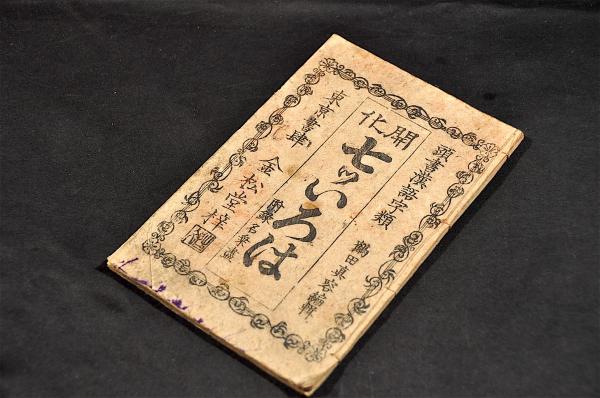 頭書漢語字類
鶴田真容編輯
開化
七ツいろは
東京書肆
金松堂梓